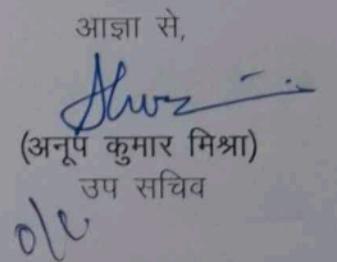 आज्ञा से,
(अनूप कुमार मिश्रा)
उप सचिव
o/c